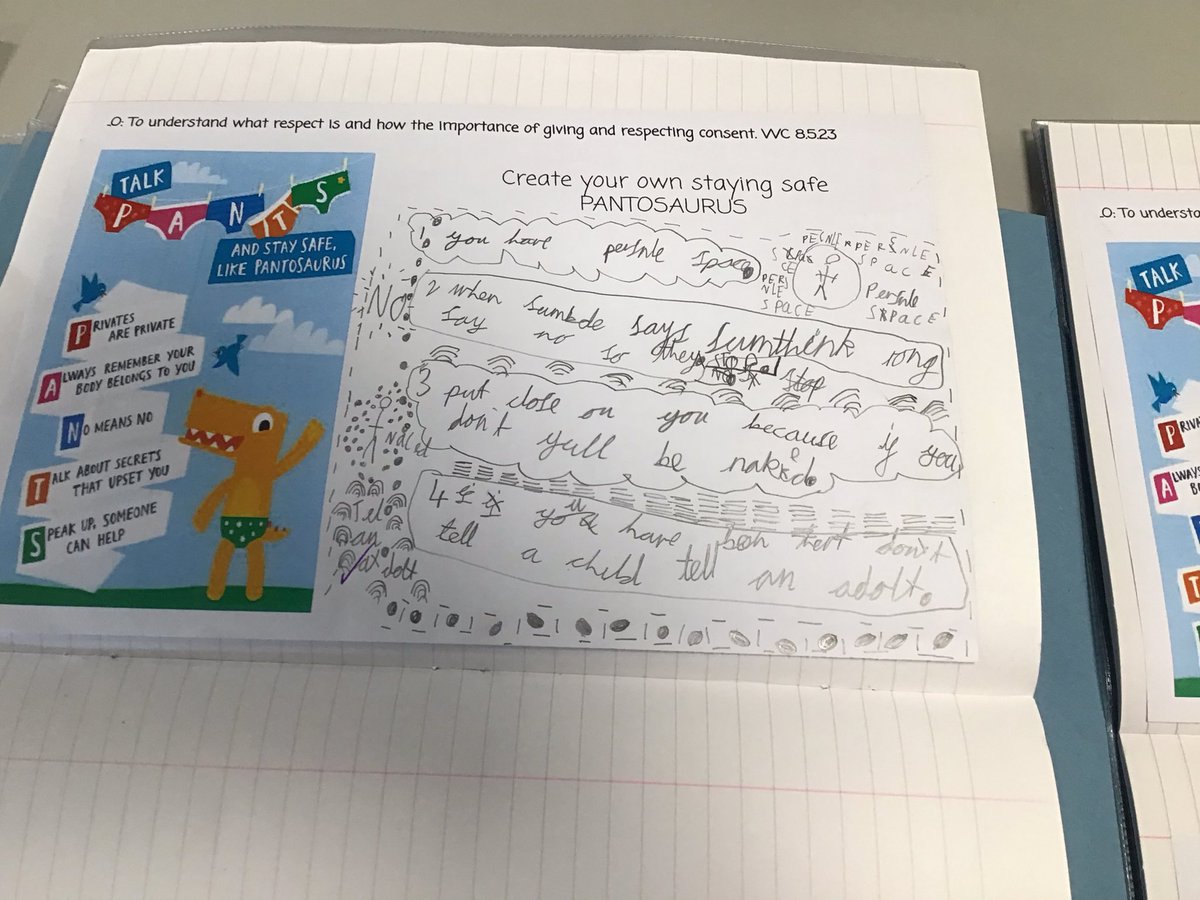 .O: To understand what respect is and how the importance of giving and respecting consent. WC 8.5.23
TALK
PANTS
AND STAY SAFE,
LIKE PANTOSAURUS
PRIVATES
ARE PRIVATE
ALWAYS REMEMBER YOUR
BODY BELONGS TO YOU
NO MEANS NO
TALK ABOUT SECRETS
THAT UPSET YOU
SPEAK UP, SOMEONE
CAN HELP
Create your own staying safe
PANTOSAURUS
1. you have persnle space
PERSNLE
SPACE
PERSNLE
SPACE
PERS
NLE
SPACE
Persnle
SPACE
No
2 when sumbde says sumthink rong
say no so they stop
3 put close on you because if you
don't yull be naked.
4 you have been hert don't
tell a child tell an adolt.
Tel
an
adolt
.O: To understa
TALK
P
PRIVA
ALWAYS
BO
N
T
S